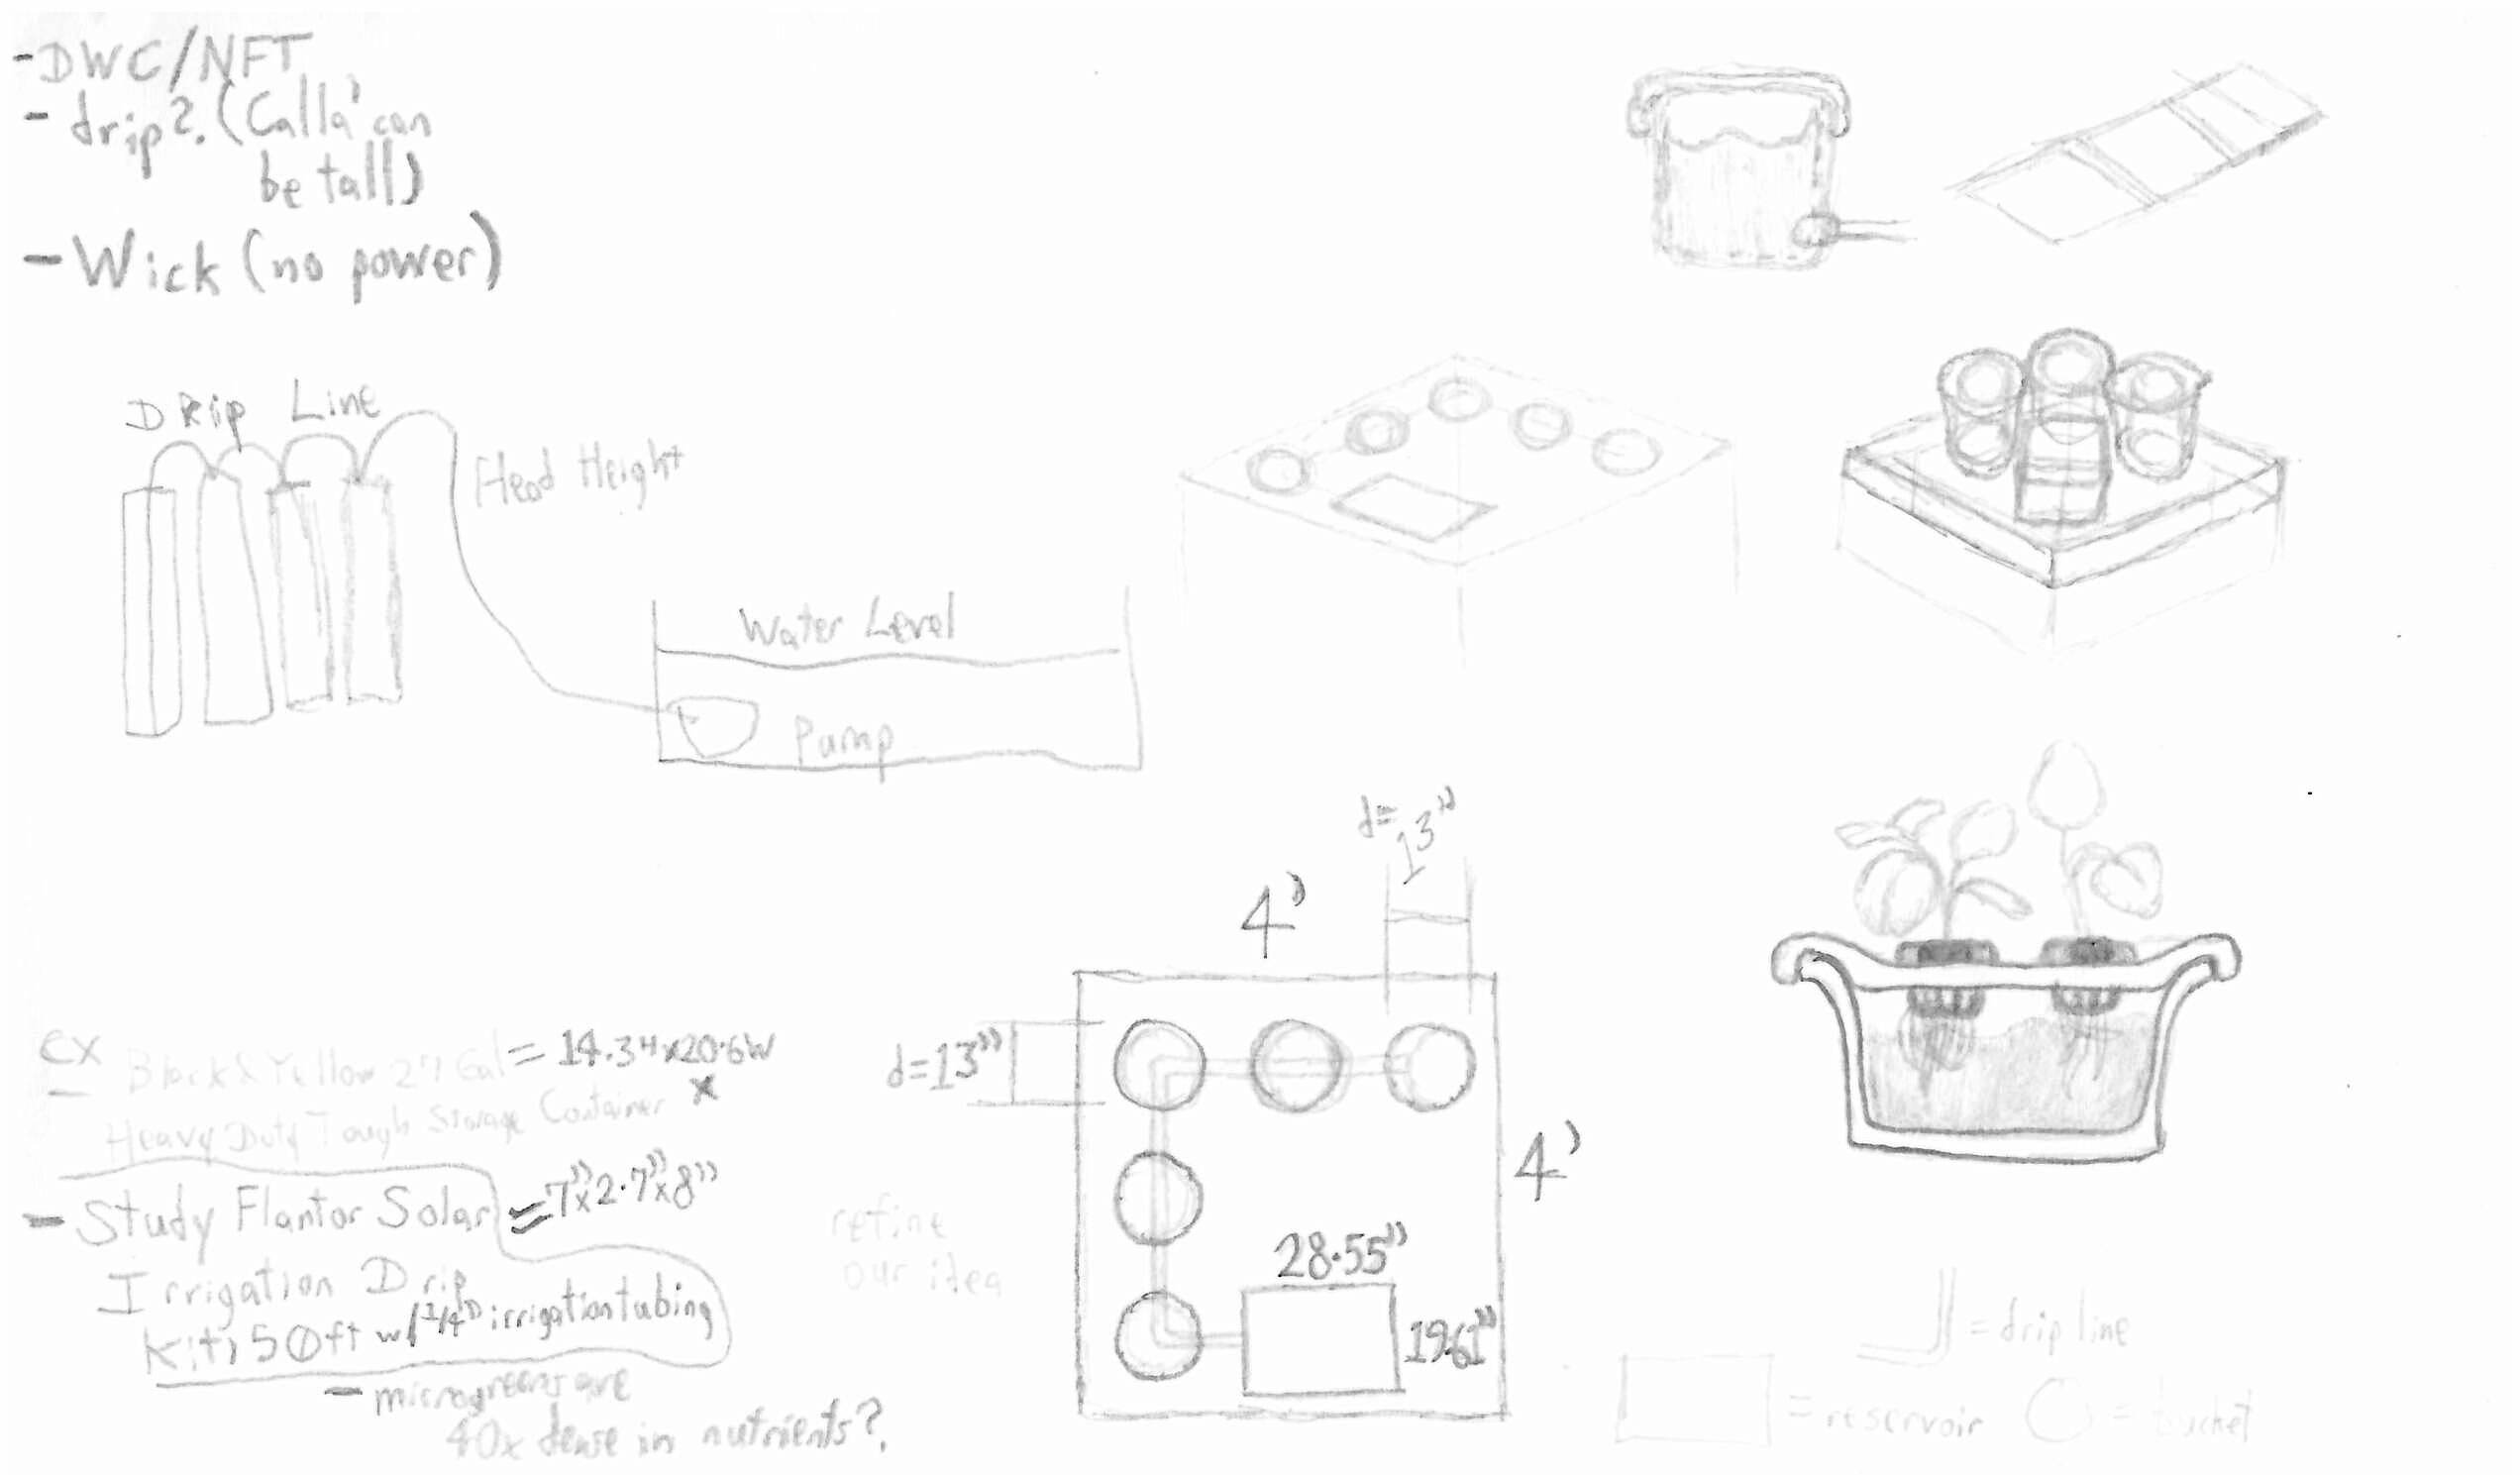 -DWC/NFT
- drip?. (Calla' can
be tall)
- Wick (no power)
DRip Line
Head Height
Water Level
Pump
d=
13"
4'
d=13"
4'
28.55"
19.61"
ex
Black & Yellow 27 Gal = 14.3H x 20.6W
x
Heavy Duty Tough Storage Container
- Study Flantor Solar = 7"x2.7"x8"
Irrigation Drip
Kit, 50ft w/ 1/4" irrigation tubing
- microgreens are
40x dense in nutrients?.
refine
our idea
= drip line
= reservoir
= bucket